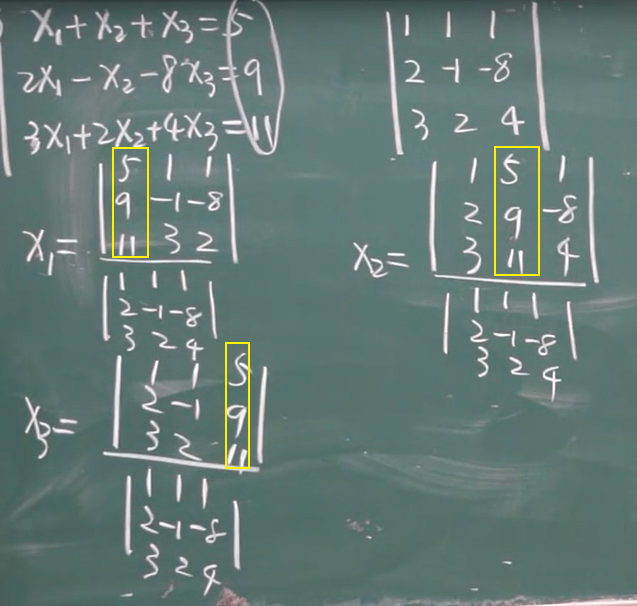 x₁ + x₂ + x₃ = 5
2x₁ - x₂ - 8x₃ = 9
3x₁ + 2x₂ + 4x₃ = 11
| 1 1 1 |
| 2 -1 -8 |
| 3 2 4 |
x₁ =
| 5 1 1 |
| 9 -1 -8 |
| 11 3 2 |
| 1 1 1 |
| 2 -1 -8 |
| 3 2 4 |
x₂ =
| 1 5 1 |
| 2 9 -8 |
| 3 11 4 |
| 1 1 1 |
| 2 -1 -8 |
| 3 2 4 |
x₃ =
| 1 1 5 |
| 2 -1 9 |
| 3 2 11 |
| 1 1 1 |
| 2 -1 -8 |
| 3 2 4 |